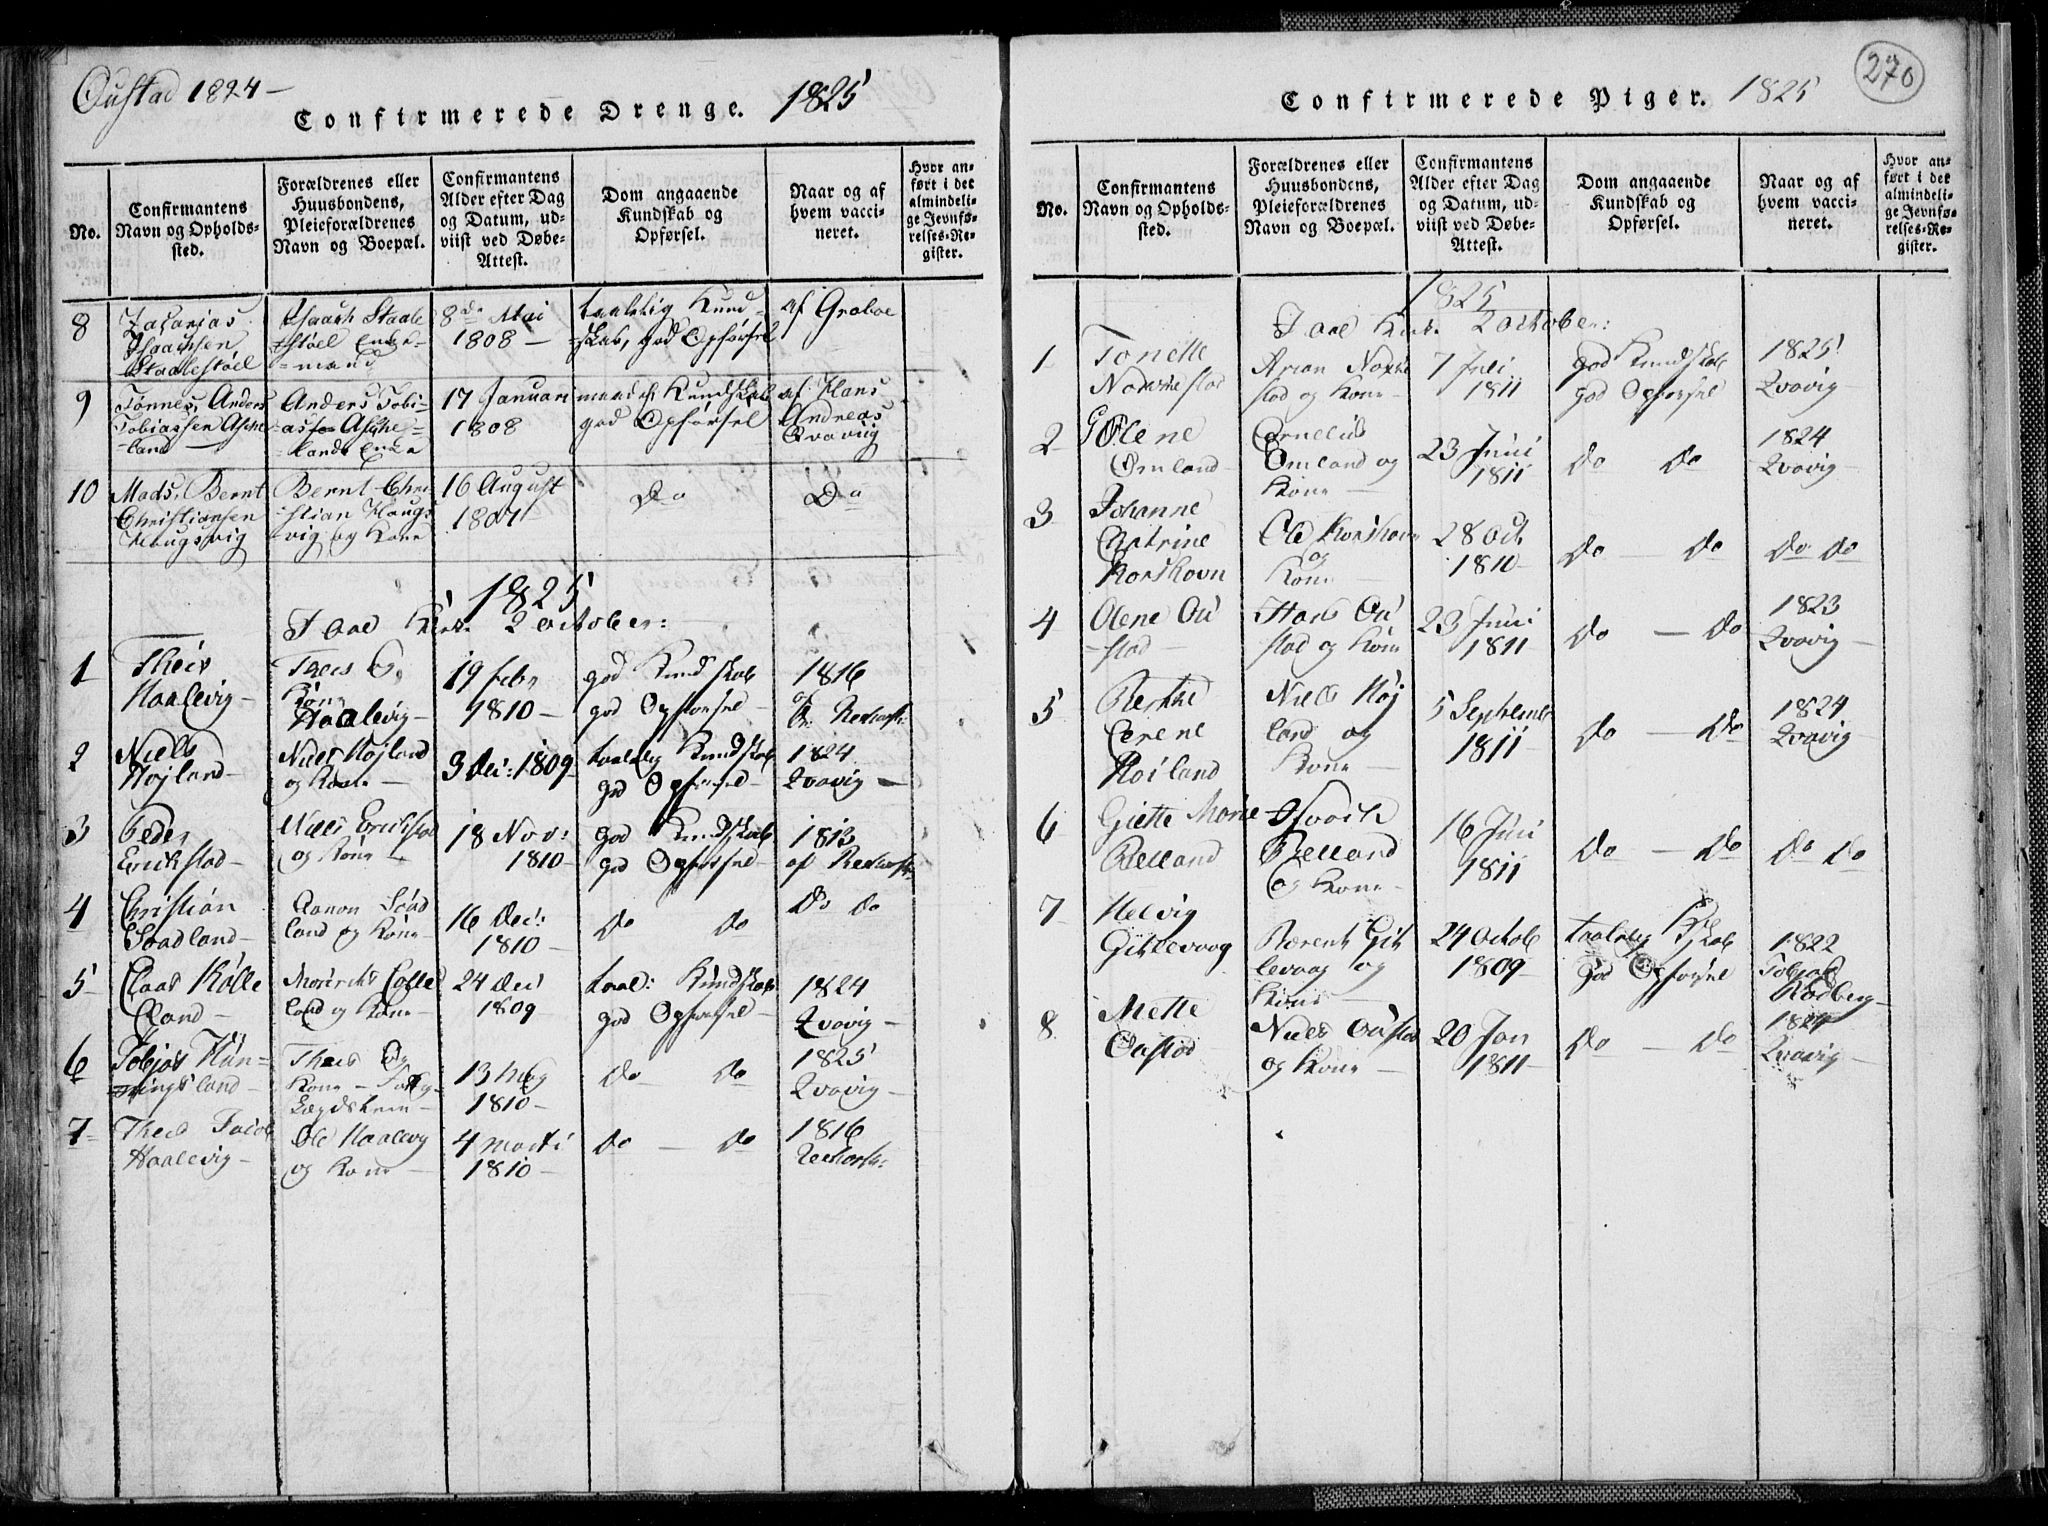 Oustad 1824 –
Confirmerede Drenge. 1825
No.
Confirmantens
Navn og Opholds-
sted.
Forældrenes eller
Huusbondens,
Pleieforældrenes
Navn og Boepæl.
Confirmantens
Alder efter Dag
og Datum, ud-
viist ved Døbe-
Attest.
Dom angaaende
Kundskab og
Opførsel.
Naar og af
hvem vacci-
neret.
Hvor an-
ført i det
almindeli-
ge Jevnfø-
relses-Re-
gister.
8
Zacarias
Isaachsen
Staalestøel
Isaach Staale
-støel Enke-
=mand
8de Mai
1808 –
taalelig Kund-
=skab, god Opførsel
af Grabae
9
Tønnes, Anders
Tobiassen Aske
-land
Anders Tobi-
17 Januari
1808
maadel. Kundskab
god Opførsel
af Hans
Andreas
Qvavig
10
Mads, Bernt
Christiansen
Haugsvig
Bernt Chri-
-stian Haugs
-vig og Kone
16 August
1807
Do
Do
1825
I Aae Kirke 2 October:
1
Theis
Haalevig –
Theis &
Kone
Haalevig –
19 febr
1810 –
god Kundskab
god Opførsel –
1816
af
2
Niels
Højland –
Niels Højland
og Kone –
3 Dec: 1809
taalelig Kundskab
god Opførsel –
1824
Qvavig –
3
Peder
Erikstad –
Niels Erikstad
og Kone –
18 Nov:
1810 –
god Kundskab
god Opførsel
1813
4
Christian
Saadland –
Aanon Saad
land og Kone –
16 Dec:
1810 –
Do Do
Do Do
5
Claas Kølle
land –
land og Kone
24 Dec
1809
taal: Kundskab
god Opførsel –
1824
Qvavig –
6
Tobias Hun-
=ingsland –
Theis &
13 Maj
1810 –
Do – Do
1825
Qvavig –
7
Theis Jacob
Haalevig –
Ole Haalevig
og Kone –
4 Marti
1810 –
Do – Do
1816
270
Confirmerede Piger. 1825
No.
Confirmantens
Navn og Opholds-
sted.
Forældrenes eller
Huusbondens,
Pleieforældrenes
Navn og Boepæl.
Confirmantens
Alder efter Dag
og Datum, ud-
viist ved Døbe-
Attest.
Dom angaaende
Kundskab og
Opførsel.
Naar og af
hvem vacci-
neret.
Hvor an-
ført i det
almindeli-
ge Jevnfø-
relses-Re-
gister.
1825
I Aae Kirke 2 October:
1
Tonette
stad og Kone –
7 Juli
1811
god Kundskab
god Opførsel
1825
Qvavig –
2
Omland
Cornelius
Omland og
Kone –
23 Juni
1811
Do Do
1824
Qvavig –
3
Johanne
Catrine
Korshavn
Ole Korshavn
og
Kone –
28 Oct
1810 –
Do – Do
Do Do
4
Olene Ou
-stad –
Hans Ou
stad og Kone
23 Juni
1811
Do – Do
1823
Qvavig –
5
Berthe
Serene
Høiland
Niels Høj
land og
Kone –
5 September
1811
Do – Do
1824
Qvavig –
6
Giette Marie
Relland
Isaach
Relland
og Kone –
16 Juni
1811
Do – Do
Do Do
7
Helvig
Gitlevaag
Berent Git
levaag og
Kone –
24 Octob
1809 –
taalelig Kskab
god Opførsel
1822
Tobias
Rødberg –
8
Mette
Oustad
Niels Oustad
og Kone –
20 Jan
1811
Do – Do
1824
Qvavig –